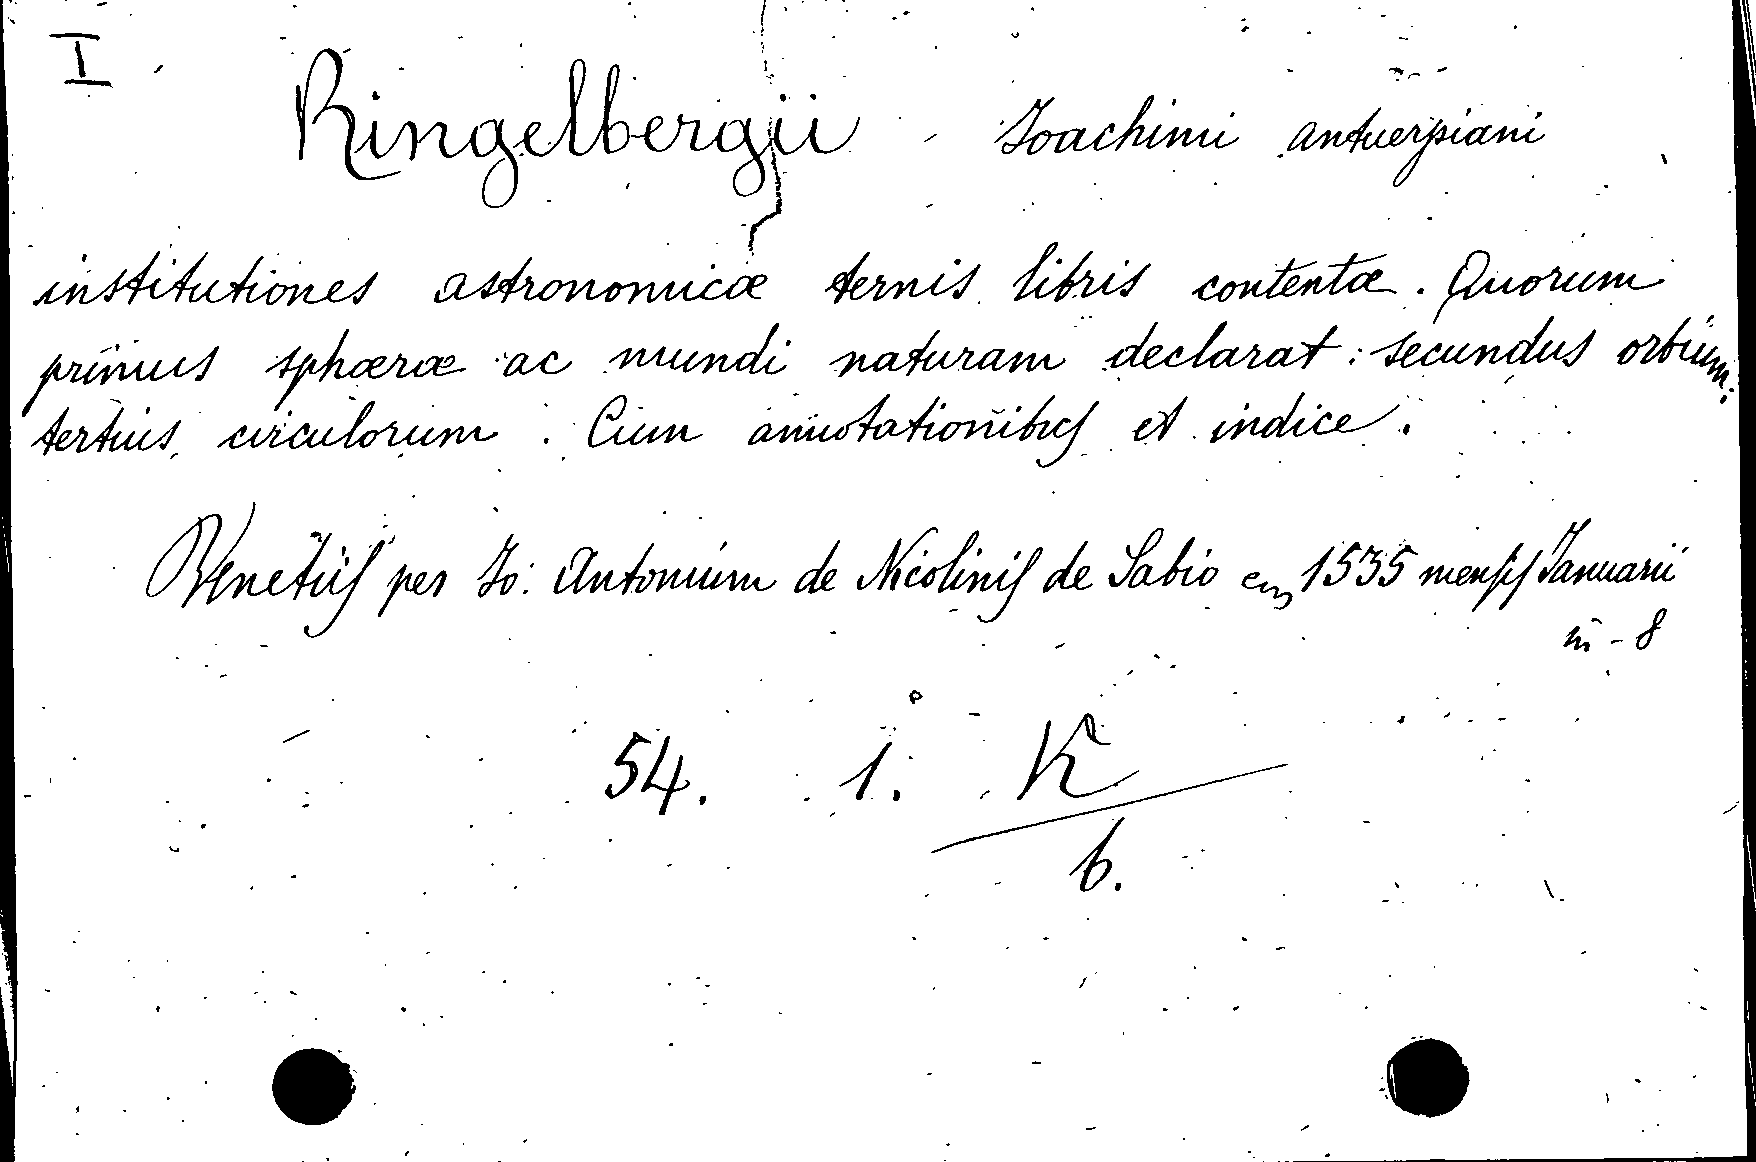 I
Ringelbergii Joachimi antuerpiani
institutiones astronomicæ ternis libris contentæ. Quorum
primus sphæræ ac mundi naturam declarat: secundus orbium:
tertius circulorum. Cum annotationibus et indice.
Venetiis per Jo: Antonium de Nicolinis de Sabio 1535 mensis Januarii
in-8
54. 1. K
b.